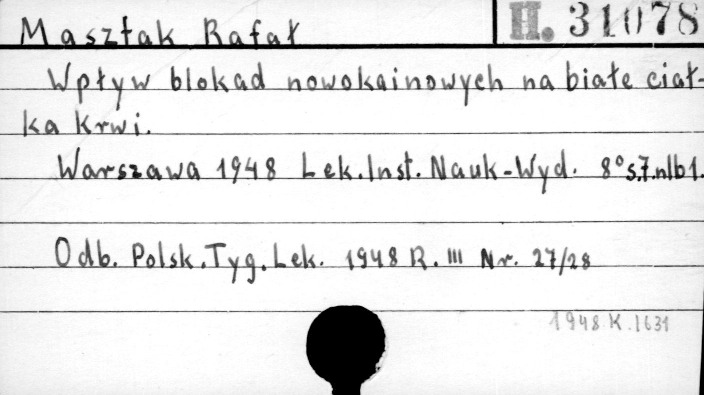 Masztak Rafał H. 31078
Wpływ blokad nowokainowych na białe ciał-
ka krwi.
Warszawa 1948 Lek. Inst. Nauk-Wyd. 8° s.7. nlb 1.
Odb. Polsk. Tyg. Lek. 1948 R. III Nr. 27/28
1948 K. 1631